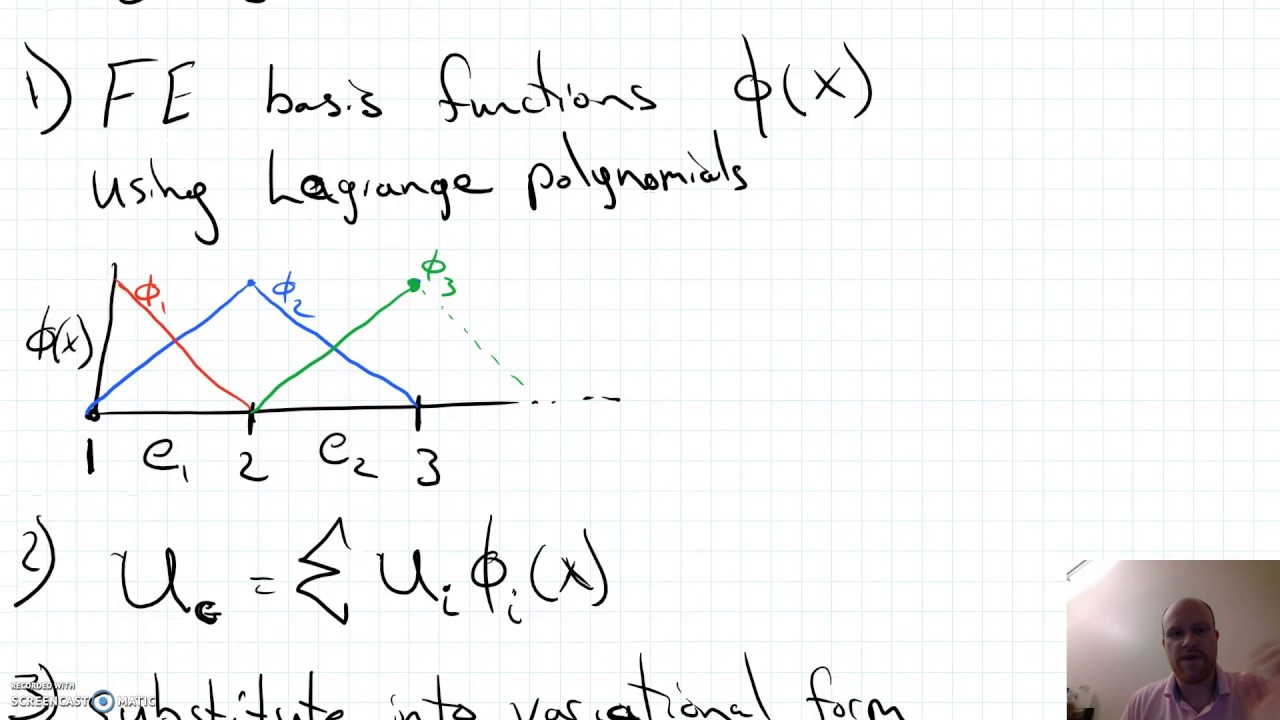 1) FE basis functions ϕ(x)
using Lagrange polynomials
ϕ(x)
ϕ1
ϕ2
ϕ3
1 e1 2 e2 3
2) Ue = Σ Ui ϕi(x)
3) substitute into variational form
RECORDED WITH
SCREENCAST MATIC